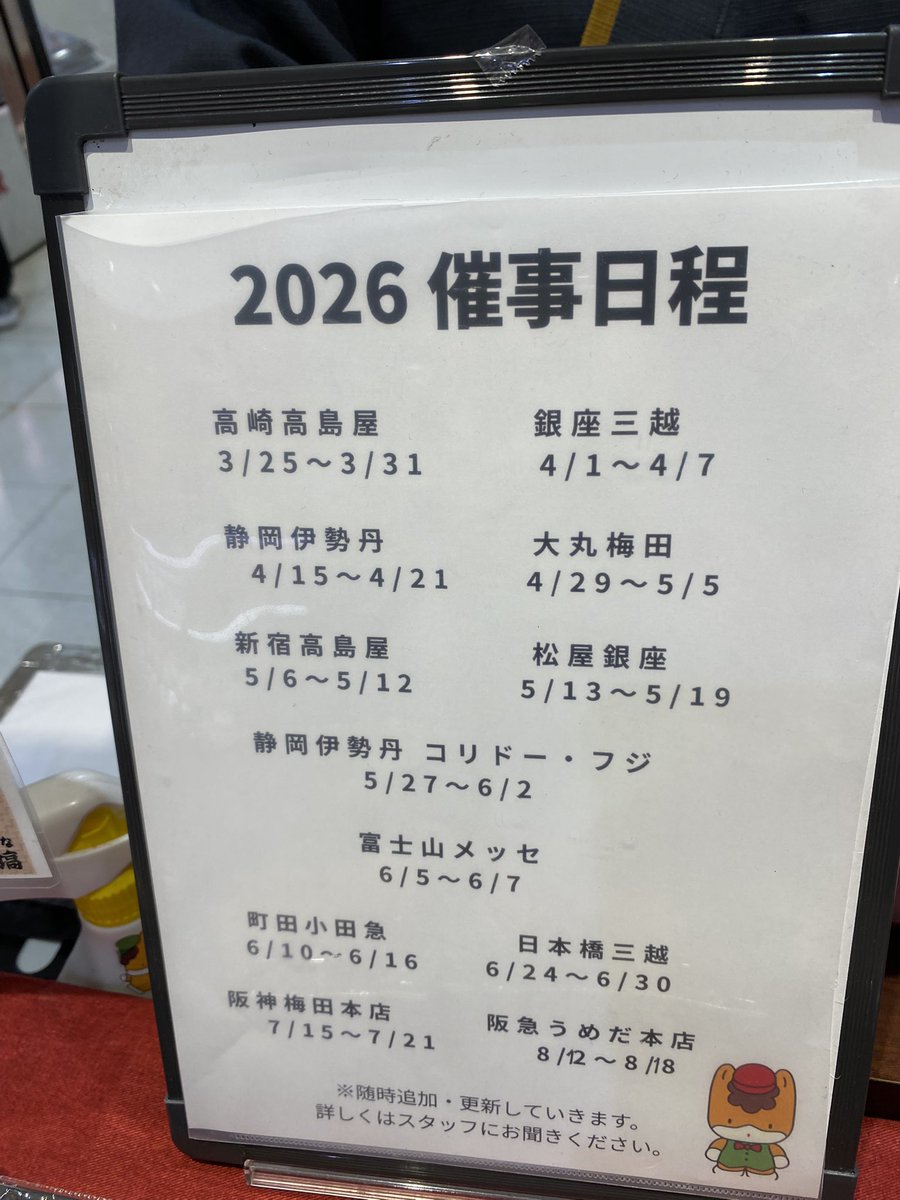 2026 催事日程
高崎高島屋
3/25〜3/31
銀座三越
4/1〜4/7
静岡伊勢丹
4/15〜4/21
大丸梅田
4/29〜5/5
新宿高島屋
5/6〜5/12
松屋銀座
5/13〜5/19
静岡伊勢丹 コリドー・フジ
5/27〜6/2
富士山メッセ
6/5〜6/7
町田小田急
6/10〜6/16
日本橋三越
6/24〜6/30
阪神梅田本店
7/15〜7/21
阪急うめだ本店
8/12〜8/18
※随時追加・更新していきます。
詳しくはスタッフにお聞きください。
な
福